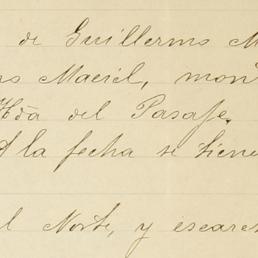 de Guillermo M
as Maciel, mon
Hda del Pasaje.
A la fecha se tiene
l Norte, y escares